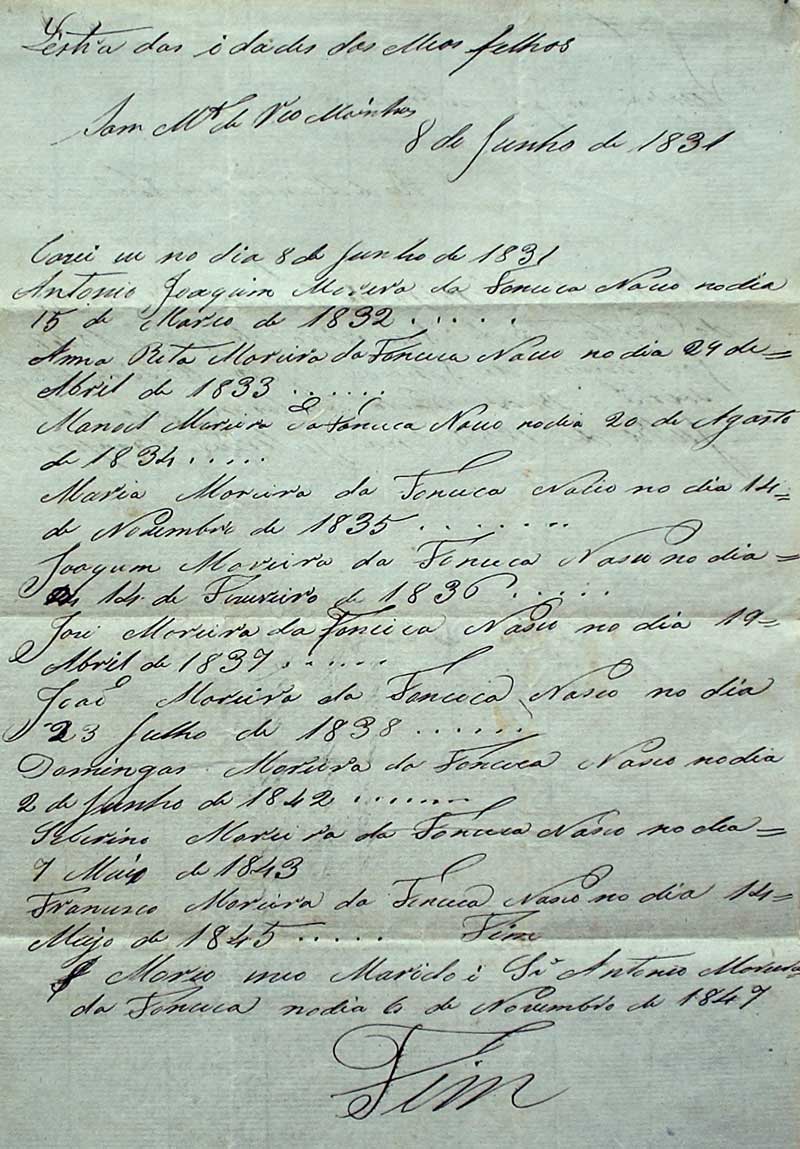 Lestra das idades dos Meos felhos
Sam M.de de Rio Moinhos
8 de Junho de 1831
Cazei eu no dia 8 de Junho de 1831
Antonio Joaquim Moreira da Fonceca Naceo no dia
15 de Março de 1832 . . . . .
Anna Rita Moreira da Fonceca Naceo no dia 29 de =
Abril de 1833 . . . . . .
Manoel Moreira da Fonceca Naceo no dia 20 de Agosto
de 1834 . . . . .
Maria Moreira da Fonceca Naceo no dia 14 =
de Novembro de 1835 . . . . . . . .
Joaquim Moreira da Fonceca Nasceo no dia =
14 de Feuvreiro de 1836 . . . . .
José Moreira da Fonceca Nasceo no dia 19 =
Abril de 1837 . . . . . .
João Moreira da Fonceca Nasceo no dia
23 Julho de 1838 . . . . . .
Domingas Moreira da Fonceca Nasceo no dia
2 de Junho de 1842 . . . . . . .
Seberino Moreira da Fonceca Nasceo no dia =
7 Maio de 1843
Francisco Moreira da Fonceca Nasceo no dia 14 =
Mejo de 1845 . . . . . Fim
Morreo meo Marido i Sr Antonio Moreira
da Fonceca no dia 6 de Novembro de 1847
Fim